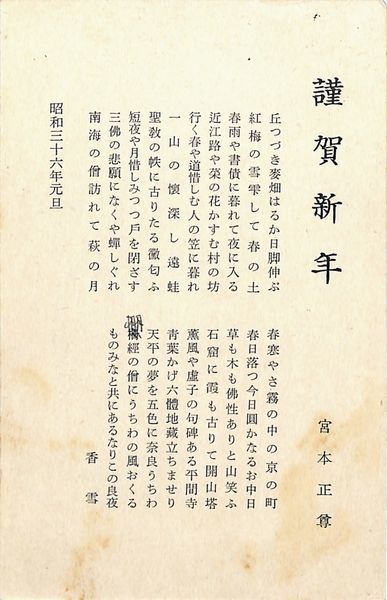 謹賀新年
宮本正尊
丘つづき麥畑はるか日脚伸ぶ
紅梅の雪雫して春の土
春雨や書債に暮れて夜に入る
近江路や菜の花かすむ村の坊
行く春や道惜しむ人の笠に暮れ
一山の懐深し遠蛙
聖教の帙に古りたる黴匂ふ
短夜や月惜しみつつ戶を閉ざす
三佛の悲願になくや蟬しぐれ
南海の僧訪れて萩の月
春寒やさ霧の中の京の町
春日落つ今日圓かなるお中日
草も木も佛性ありと山笑ふ
石窟に霞も古りて開山塔
薫風や虛子の句碑ある平間寺
靑葉かげ六體地藏立ちませり
天平の夢を五色に奈良うちわ
經の僧にうちわの風おくる
ものみなと共にあるなりこの良夜
香雪
昭和三十六年元旦